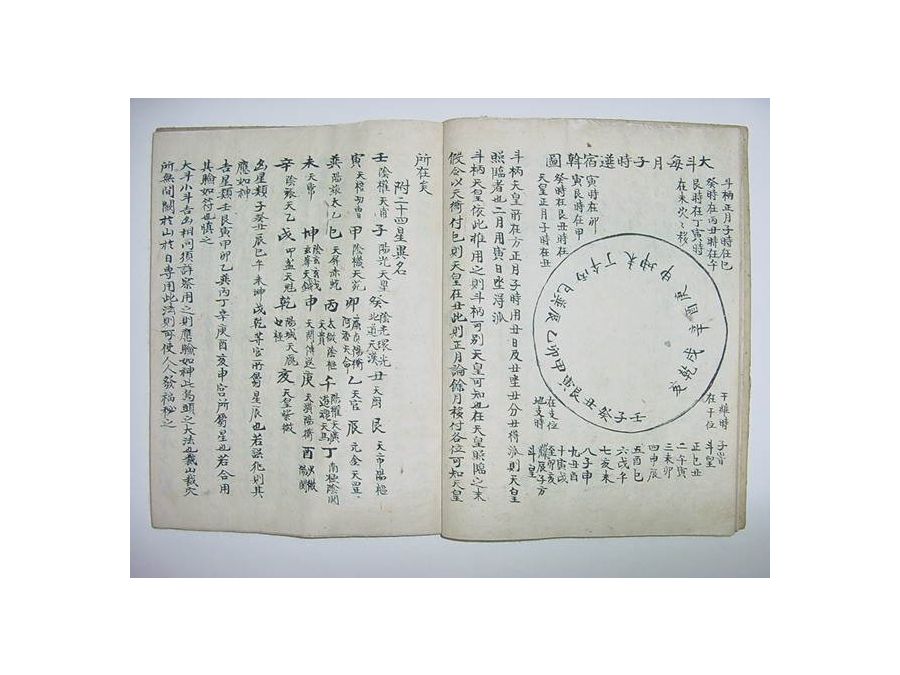 大斗每月子時選宿斡圖
斗柄正月子時在巳
癸時在丙丑時在午
艮時在丁寅時
在未
寅時在卯
寅艮時在甲
癸時在艮丑時在
天皇正月子時在丑
壬子癸丑艮寅甲卯乙辰巽巳丙午丁未坤申
庚酉辛戌乾亥
干維時
在干位
在支位
地支時
子時
斗皇
正巳丑
二午寅
三未卯
四申辰
五酉巳
六戌午
七亥未
八子申
九丑酉
十寅戌
至卯亥
臘辰子方
斗皇
斗柄天皇所在方正月子時用丑日及丑坐丑分丑得派則天皇
照臨者也二月用寅日坐得派
斗柄天皇依此推用之則斗柄可別天皇可知也在天皇照臨之末
假令以天衛付巳則天皇在丑此則正月論餘月橫付各位可知天皇
所在矣
附二十四星異名
壬 陰權天甫 子 陽光天皇 癸 陰光 北道天漢 丑 天厨 艮 天市陽樞
寅 天棓 甲 陰機天苑 卯 陽衡 乙 天官 辰 元金天罡
巽 陽旋太乙 巳 天屛赤蛇 丙 太微陰樞 天貴 午 陽權天廣 天馬 丁 南極陰闓
未 天常 坤 申 天關 庚 天潢陽衡 酉 陽闓
辛 陰旋天乙 戌 天魁 乾 陽璣天廐 亥 天皇紫微
凶星類子癸丑辰巳午未坤戌乾等宮所屬星辰也若誤犯則其
應如神
吉星類壬艮寅甲卯乙巽丙丁辛庚酉亥申宮所屬星也若合用
其驗如符也愼之
大斗小斗吉凶相同須詳察用之則應驗如神此烏頭之大法也裁山裁穴
所無間關於山於日專用此法則可使人人發福秘之